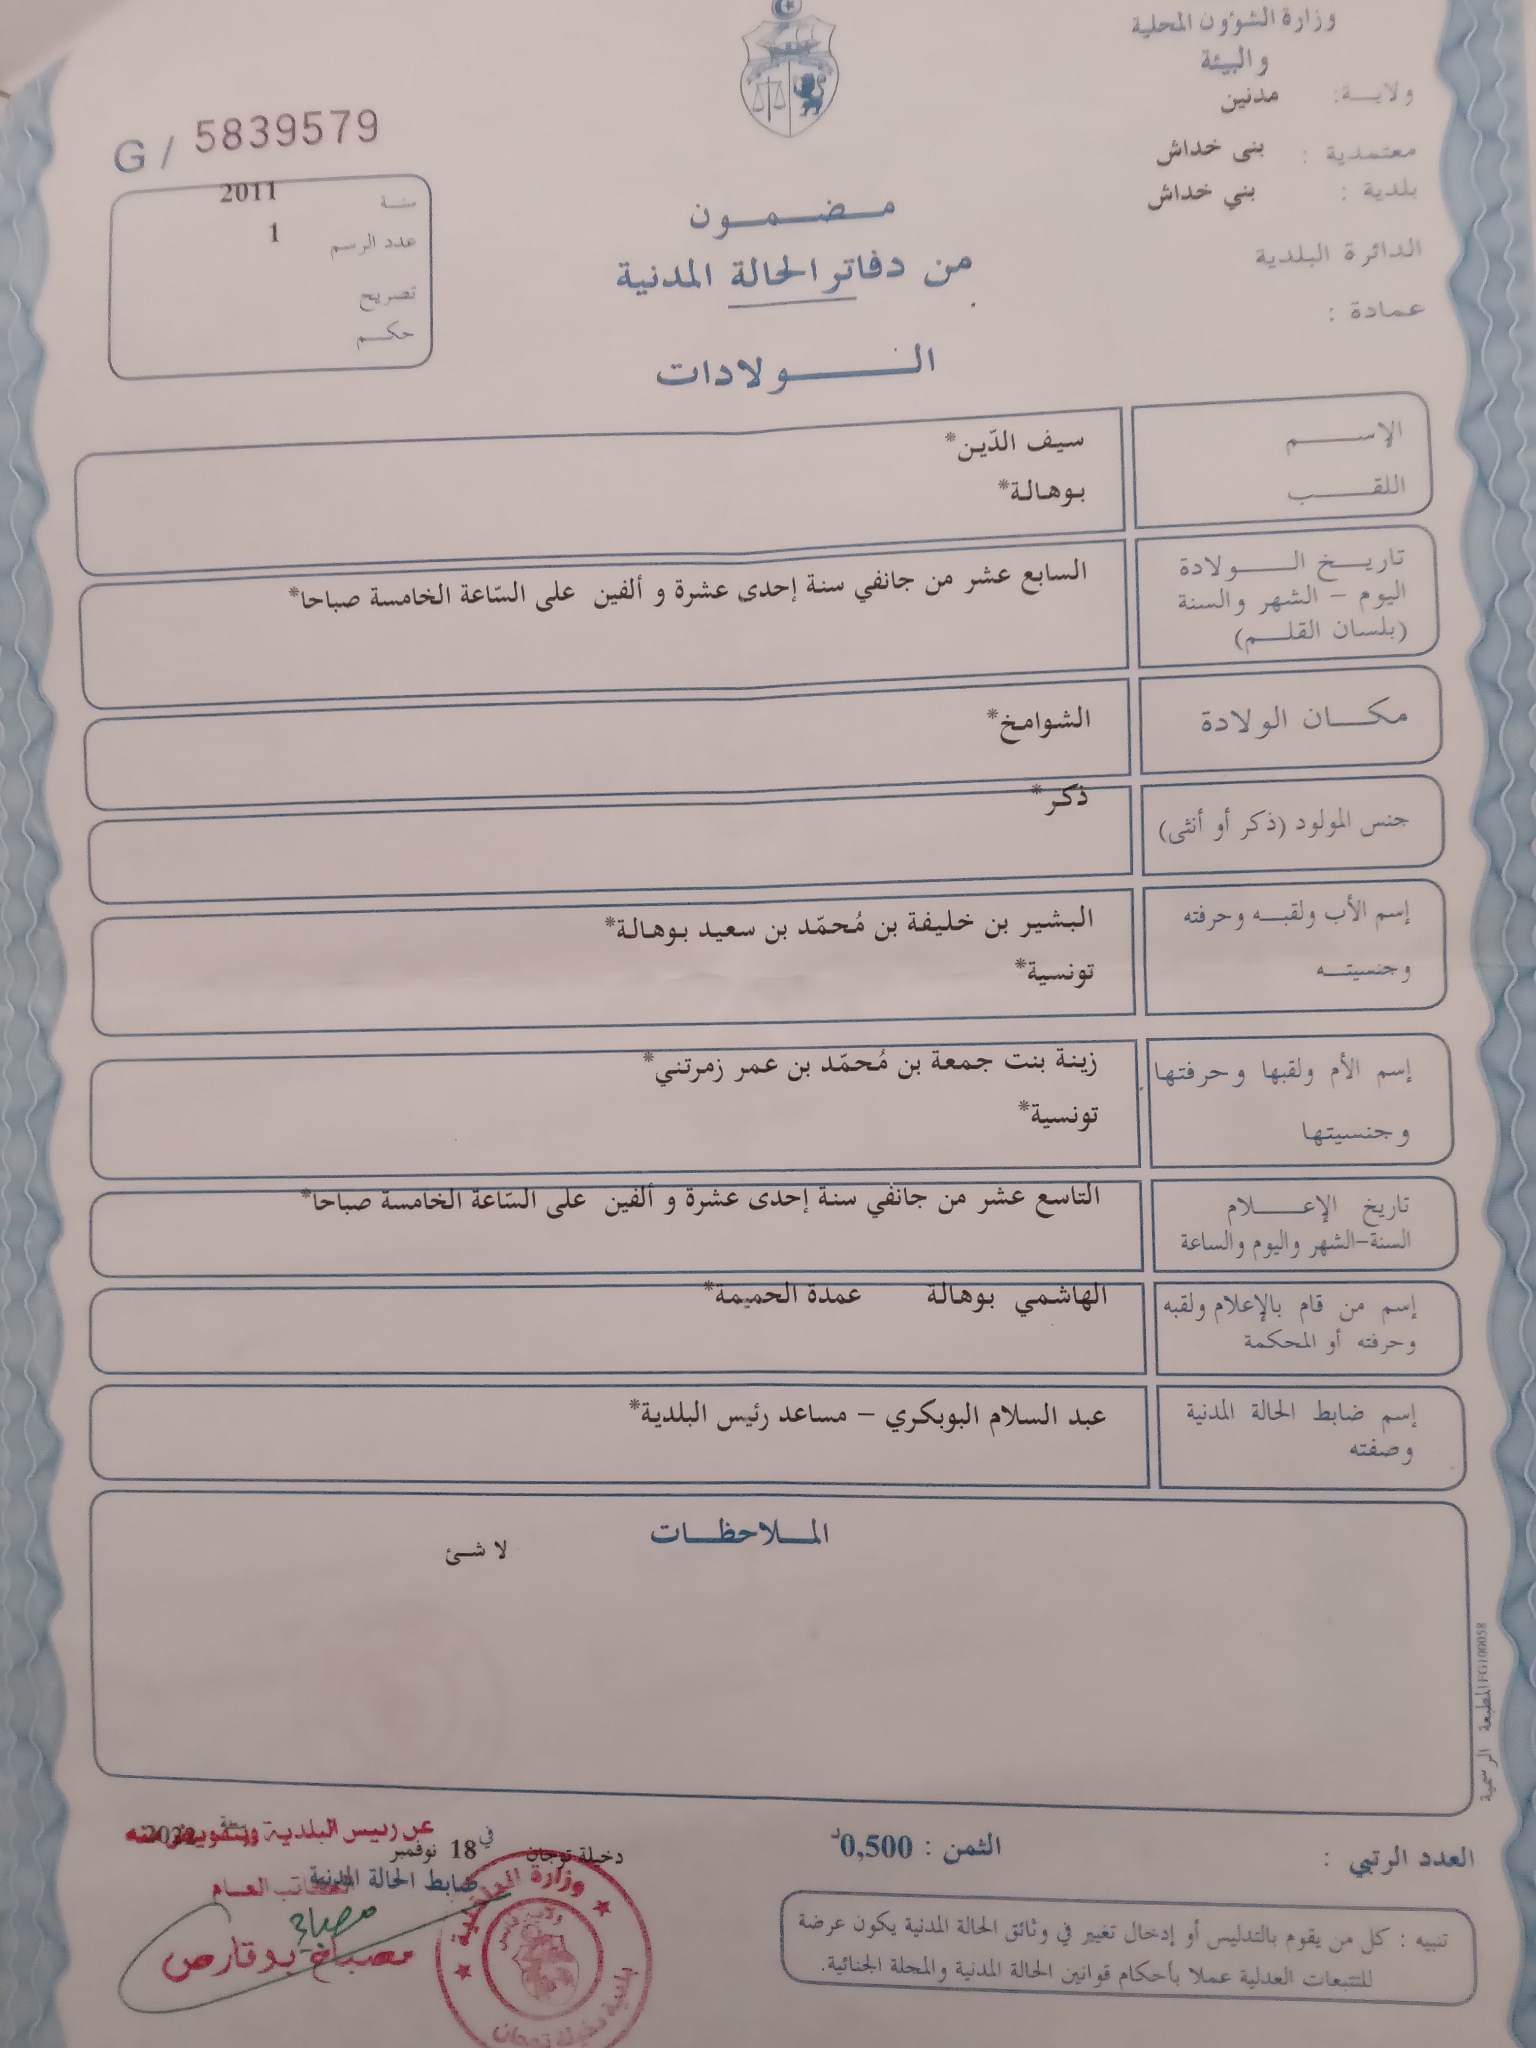 وزارة الشؤون المحلية
والبيئة
ولايــة: مدنين
معتمدية : بنى خداش
بلدية : بني خداش
الدائرة البلدية
عمادة :
G / 5839579
سنــة 2011
عدد الرسم 1
تصريح
حكــم
مــضــمــون
من دفاتر الحالة المدنية
الــولادات
الإســـم سيف الدّين*
اللقـــب بوهالة*
تاريــخ الـــولادة
اليوم – الشهر والسنة
(بلسان القلــم)
السابع عشر من جانفي سنة إحدى عشرة و ألفين على السّاعة الخامسة صباحا*
مكــان الولادة الشوامخ*
جنس المولود (ذكر أو أنثى) ذكر*
إسم الأب ولقبــه وحرفته البشير بن خليفة بن مُحمّد بن سعيد بوهالة*
وجنسيتــه تونسية*
إسم الأم ولقبها وحرفتها زينة بنت جمعة بن مُحمّد بن عمر زمرتني*
وجنسيتها تونسية*
تاريخ الإعـــلام
السنة–الشهر واليوم والساعة
التاسع عشر من جانفي سنة إحدى عشرة و ألفين على السّاعة الخامسة صباحا*
إسم من قام بالإعلام ولقبه
وحرفته أو المحكمة
الهاشمي بوهالة عمدة الحميمة*
إسم ضابط الحالة المدنية
وصفته
عبد السلام البوبكري – مساعد رئيس البلدية*
المــلاحظــات
لا شئ
المطبعة الرسمية FG100058
العدد الرتبي :
الثمن : 0,500د
دخيلة توجان في 18 نوفمبر سنة 2022
عن رئيس البلدية وبتفويض منه
ضابط الحالة المدنية
الكاتب العام
مصباح
مصباح بوقارص
وزارة الداخلية
ولاية قابس
بلدية دخيلة توجان
تنبيه : كل من يقوم بالتدليس أو إدخال تغيير في وثائق الحالة المدنية يكون عرضة
للتتبعات العدلية عملا بأحكام قوانين الحالة المدنية والمجلة الجنائية.